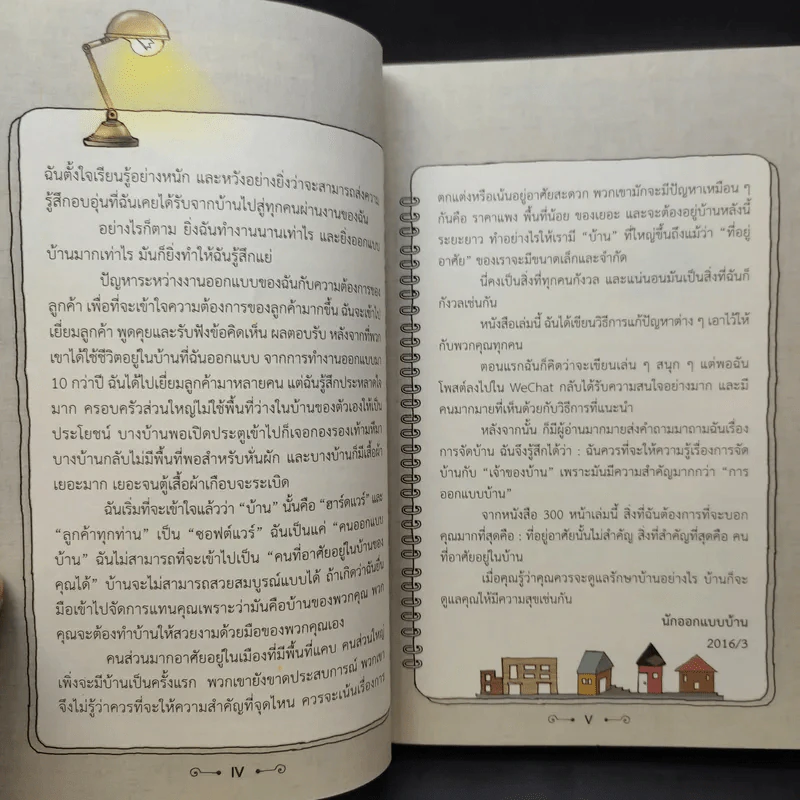 ฉันตั้งใจเรียนรู้อย่างหนัก และหวังอย่างยิ่งว่าจะสามารถส่งความ
รู้สึกอบอุ่นที่ฉันเคยได้รับจากบ้านไปสู่ทุกคนผ่านงานของฉัน
อย่างไรก็ตาม ยิ่งฉันทำงานนานเท่าไร และยิ่งออกแบบ
บ้านมากเท่าไร มันก็ยิ่งทำให้ฉันรู้สึกแย่
ปัญหาระหว่างงานออกแบบของฉันกับความต้องการของ
ลูกค้า เพื่อที่จะเข้าใจความต้องการของลูกค้ามากขึ้น ฉันจะเข้าไป
เยี่ยมลูกค้า พูดคุยและรับฟังข้อคิดเห็น ผลตอบรับ หลังจากที่พวก
เขาได้ใช้ชีวิตอยู่ในบ้านที่ฉันออกแบบ จากการทำงานออกแบบมา
10 กว่าปี ฉันได้ไปเยี่ยมลูกค้ามาหลายคน แต่ฉันรู้สึกประหลาดใจ
มาก ครอบครัวส่วนใหญ่ไม่ใช้พื้นที่ว่างในบ้านของตัวเองให้เป็น
ประโยชน์ บางบ้านพอเปิดประตูเข้าไปก็เจอกองรองเท้ามหึมา
บางบ้านกลับไม่มีพื้นที่พอสำหรับหั่นผัก และบางบ้านก็มีเสื้อผ้า
เยอะมาก เยอะจนตู้เสื้อผ้าเกือบจะระเบิด
ฉันเริ่มที่จะเข้าใจแล้วว่า "บ้าน" นั้นคือ "ฮาร์ดแวร์" และ
"ลูกค้าทุกท่าน" เป็น "ซอฟต์แวร์" ฉันเป็นแค่ "คนออกแบบ
บ้าน" ฉันไม่สามารถที่จะเข้าไปเป็น "คนที่อาศัยอยู่ในบ้านของ
คุณได้" บ้านจะไม่สามารถสวยสมบูรณ์แบบได้ ถ้าเกิดว่าฉันยื่น
มือเข้าไปจัดการแทนคุณเพราะว่ามันคือบ้านของพวกคุณ พวก
คุณจะต้องทำบ้านให้สวยงามด้วยมือของพวกคุณเอง
คนส่วนมากอาศัยอยู่ในเมืองที่มีพื้นที่แคบ คนส่วนใหญ่
เพิ่งจะมีบ้านเป็นครั้งแรก พวกเขายังขาดประสบการณ์ พวกเขา
จึงไม่รู้ว่าควรที่จะให้ความสำคัญที่จุดไหน ควรจะเน้นเรื่องการ
IV
ตกแต่งหรือเน้นอยู่อาศัยสะดวก พวกเขามักจะมีปัญหาเหมือน ๆ
กันคือ ราคาแพง พื้นที่น้อย ของเยอะ และจะต้องอยู่บ้านหลังนี้
ระยะยาว ทำอย่างไรให้เรามี "บ้าน" ที่ใหญ่ขึ้นถึงแม้ว่า "ที่อยู่
อาศัย" ของเราจะมีขนาดเล็กและจำกัด
นี่คงเป็นสิ่งที่ทุกคนกังวล และแน่นอนมันเป็นสิ่งที่ฉันก็
กังวลเช่นกัน
หนังสือเล่มนี้ ฉันได้เขียนวิธีการแก้ปัญหาต่าง ๆ เอาไว้ให้
กับพวกคุณทุกคน
ตอนแรกฉันก็คิดว่าจะเขียนเล่น ๆ สนุก ๆ แต่พอฉัน
โพสต์ลงไปใน WeChat กลับได้รับความสนใจอย่างมาก และมี
คนมากมายที่เห็นด้วยกับวิธีการที่แนะนำ
หลังจากนั้น ก็มีผู้อ่านมากมายส่งคำถามมาถามฉันเรื่อง
การจัดบ้าน ฉันจึงรู้สึกได้ว่า : ฉันควรที่จะให้ความรู้เรื่องการจัด
บ้านกับ "เจ้าของบ้าน" เพราะมันมีความสำคัญมากกว่า "การ
ออกแบบบ้าน"
จากหนังสือ 300 หน้าเล่มนี้ สิ่งที่ฉันต้องการที่จะบอก
คุณมากที่สุดคือ : ที่อยู่อาศัยนั้นไม่สำคัญ สิ่งที่สำคัญที่สุดคือ คน
ที่อาศัยอยู่ในบ้าน
เมื่อคุณรู้ว่าคุณควรจะดูแลรักษาบ้านอย่างไร บ้านก็จะ
ดูแลคุณให้มีความสุขเช่นกัน
นักออกแบบบ้าน
2016/3
V